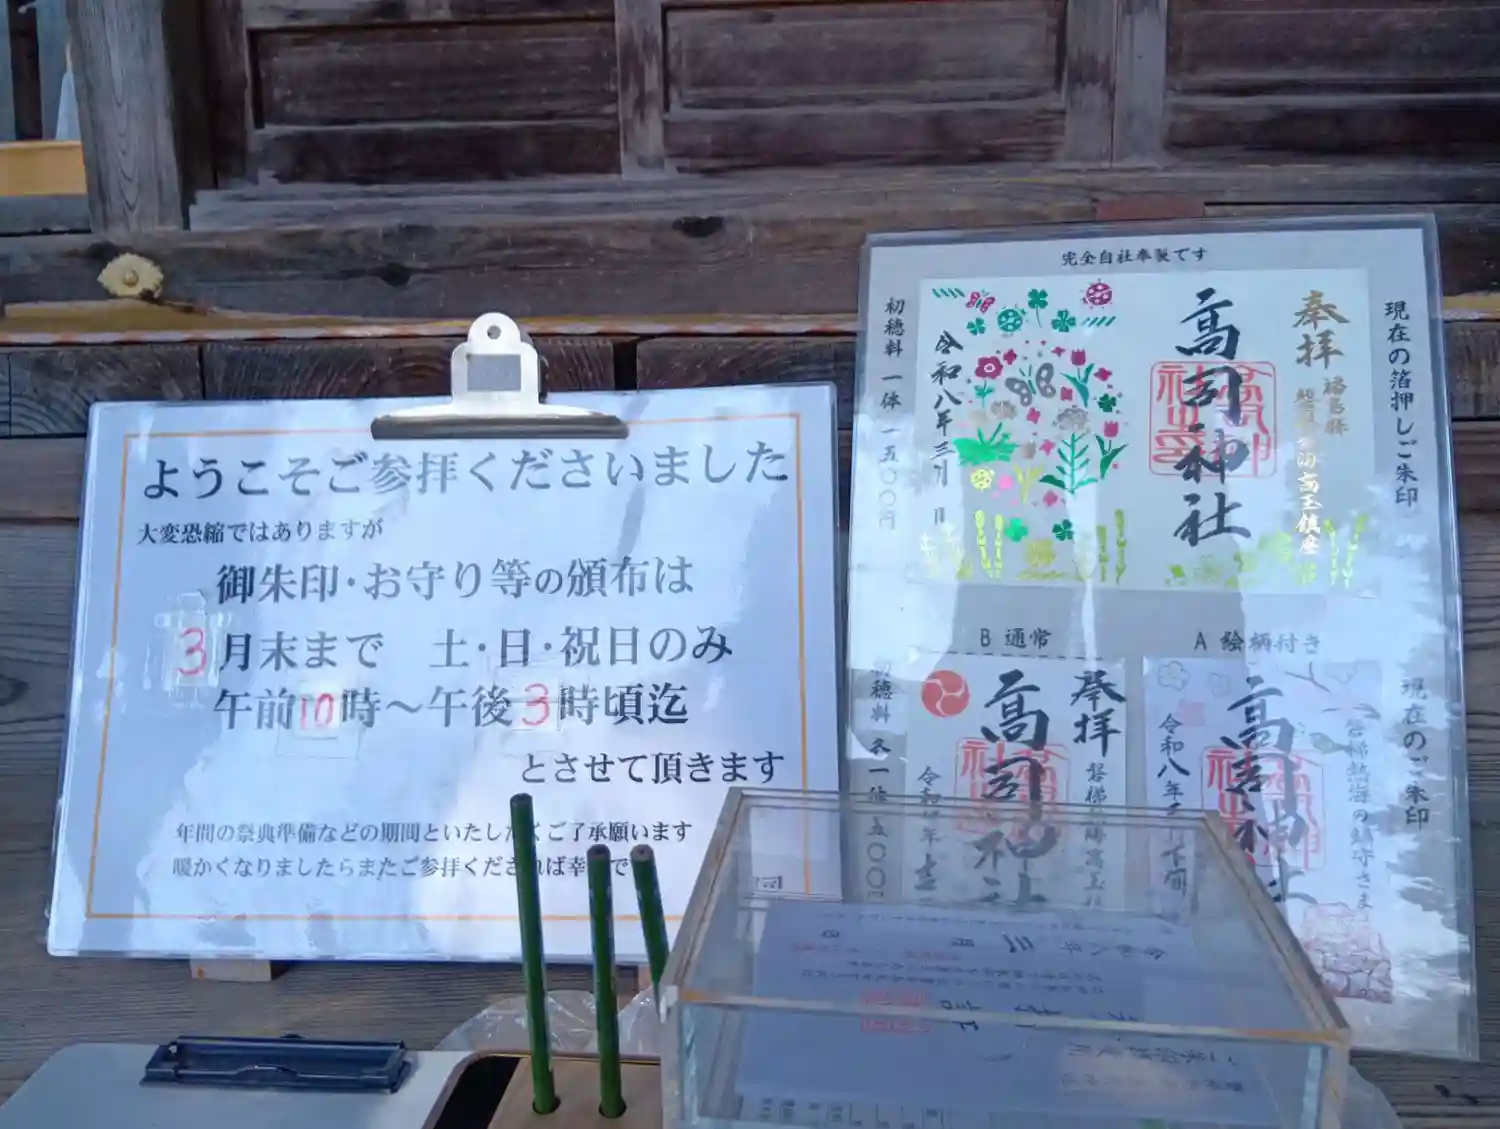 ようこそご参拝くださいました
大変恐縮ではありますが
御朱印・お守り等の頒布は
3月末まで 土・日・祝日のみ
午前10時～午後3時頃迄
とさせて頂きます
年間の祭典準備などの期間といたしたくご了承願います
暖かくなりましたらまたご参拝くだされば幸
完全自社奉製です
現在の箔押しご朱印
奉拝
高司神社
令和八年三月 日
初穂料 一体 一五〇〇円
B 通常
A 絵柄付き
現在のご朱印
奉拝
高司神社
初穂料 各一体 五〇〇
高司神社
令和八年
磐梯熱海の鎮守さま
令和八年 三月 日